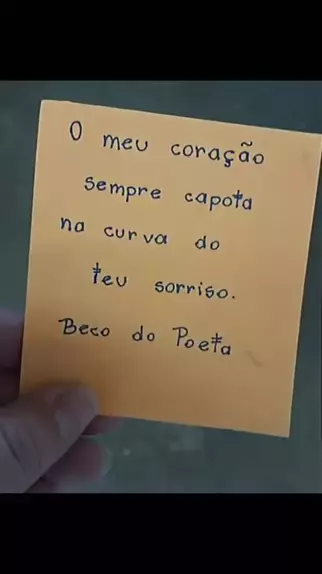 O meu coração
sempre capota
na curva do
teu sorriso.
Beco do Poeta